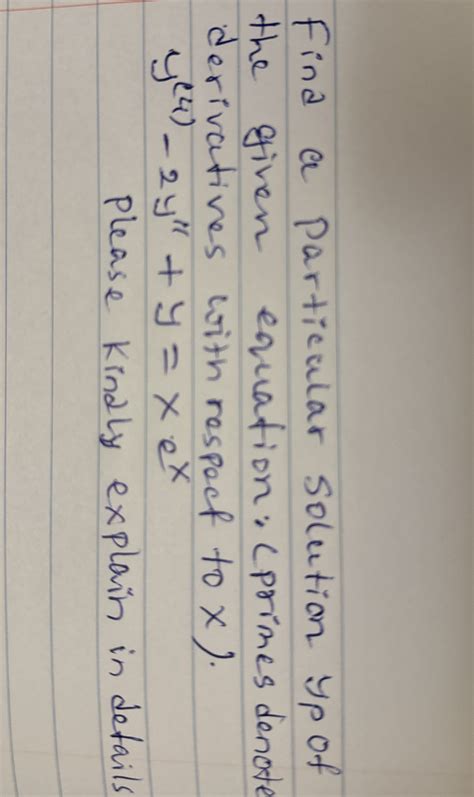 Find a particular solution yp of
the given equation: (primes denote
derivatives with respect to x).
y⁽⁴⁾ - 2y'' + y = x eˣ
please kindly explain in details